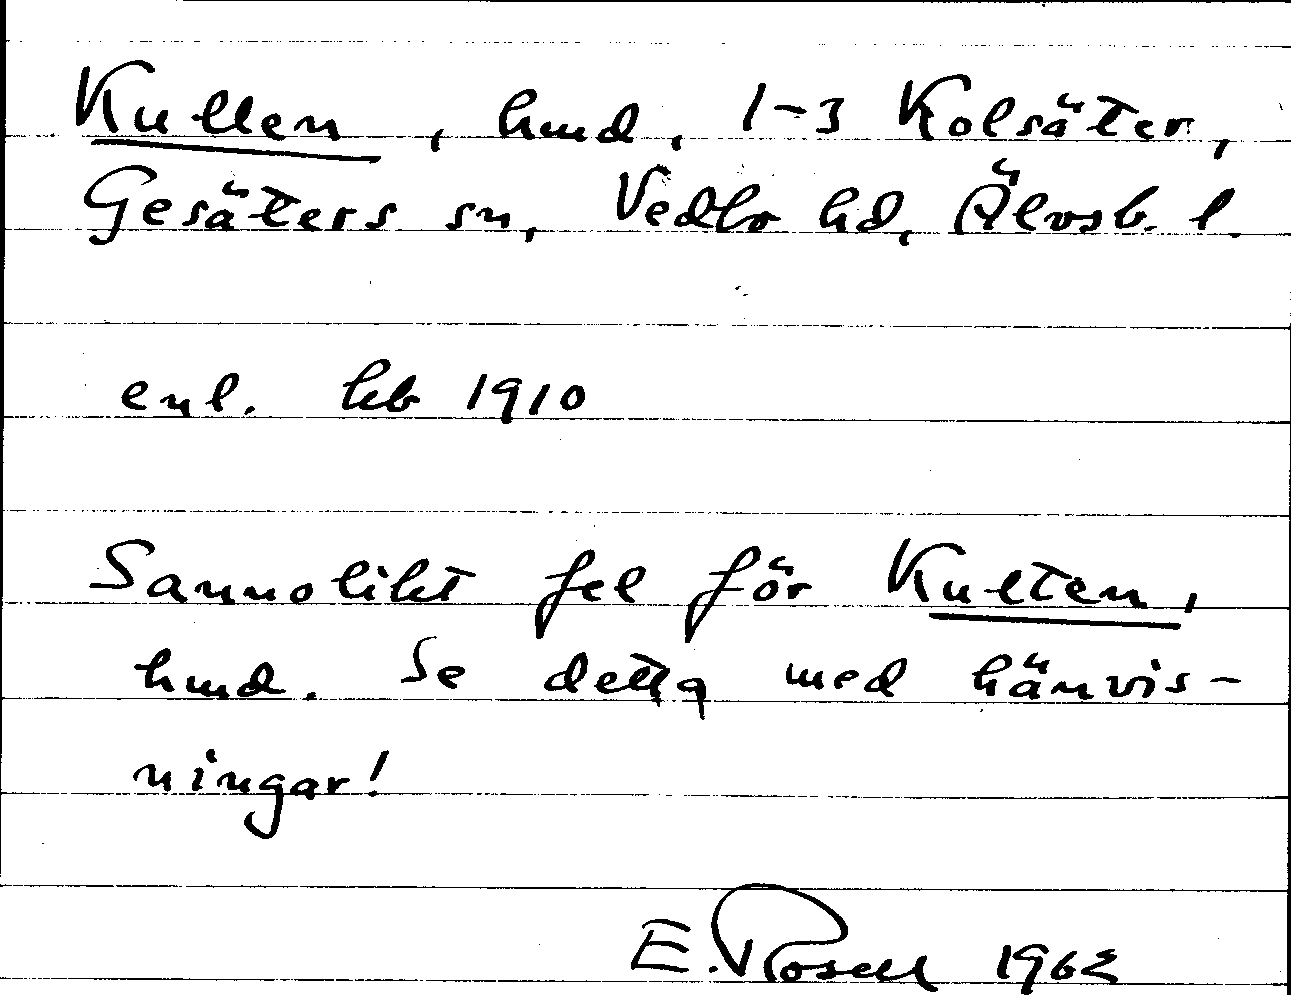 Kullen, hmd, 1-3 Kolsäter,
Gesäters sn, Vedbo hd, Älvsb. l.
enl. hb 1910
Sannolikt fel för Kulten,
hmd. Se detta med hänvis-
ningar!
E. Rosell 1962